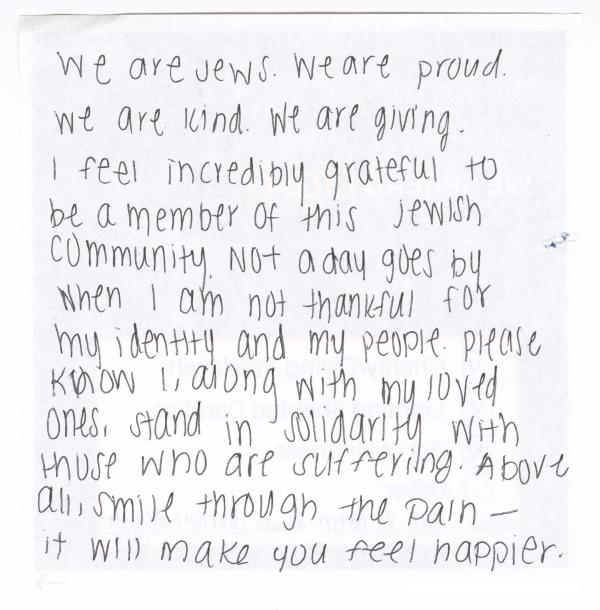 We are Jews. We are proud.
We are kind. We are giving.
I feel incredibly grateful to
be a member of this Jewish
community. Not a day goes by
when I am not thankful for
my identity and my people. Please
know I, along with my loved
ones, stand in solidarity with
those who are suffering. Above
all, smile through the pain —
it will make you feel happier.